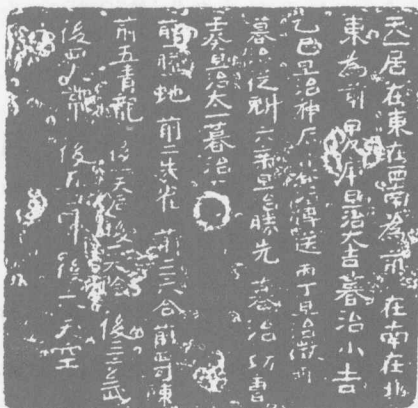 天一居在東在西南為前 在南在北
東為前 甲戊庚旦治大吉暮治小吉
乙己旦治神后暮治傳送 丙丁旦治徵明
暮治從魁 六辛旦治勝先 暮治功曹
壬癸旦治太一暮治
前一螣蛇 前二朱雀 前三六合 前四勾陳
前五青龍 後一天后 後二太陰 後三玄武
後四太常 後五白虎 後六天空